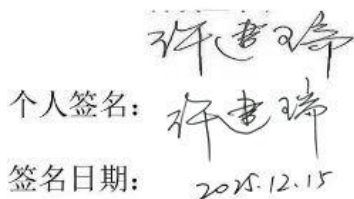 许建瑞
个人签名：许建瑞
签名日期：2025.12.15